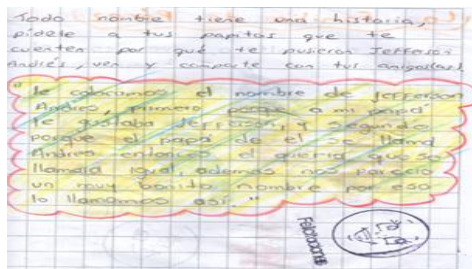 Todo nombre tiene una historia,
pídele a tus papitos que te
cuenten por qué te pusieron Jefferson
Andrés, ven y comparte con tus amiguitos!
"le colocamos el nombre de Jefferson
Andres, primero porque a mi papá
le gustaba Jefferson, y segundo
porque el papá de el se llama
Andres entonces el queria que se
llamara igual, ademas nos parecio
un muy bonito nombre por eso
lo llamamos asi."
FELICITACIONES